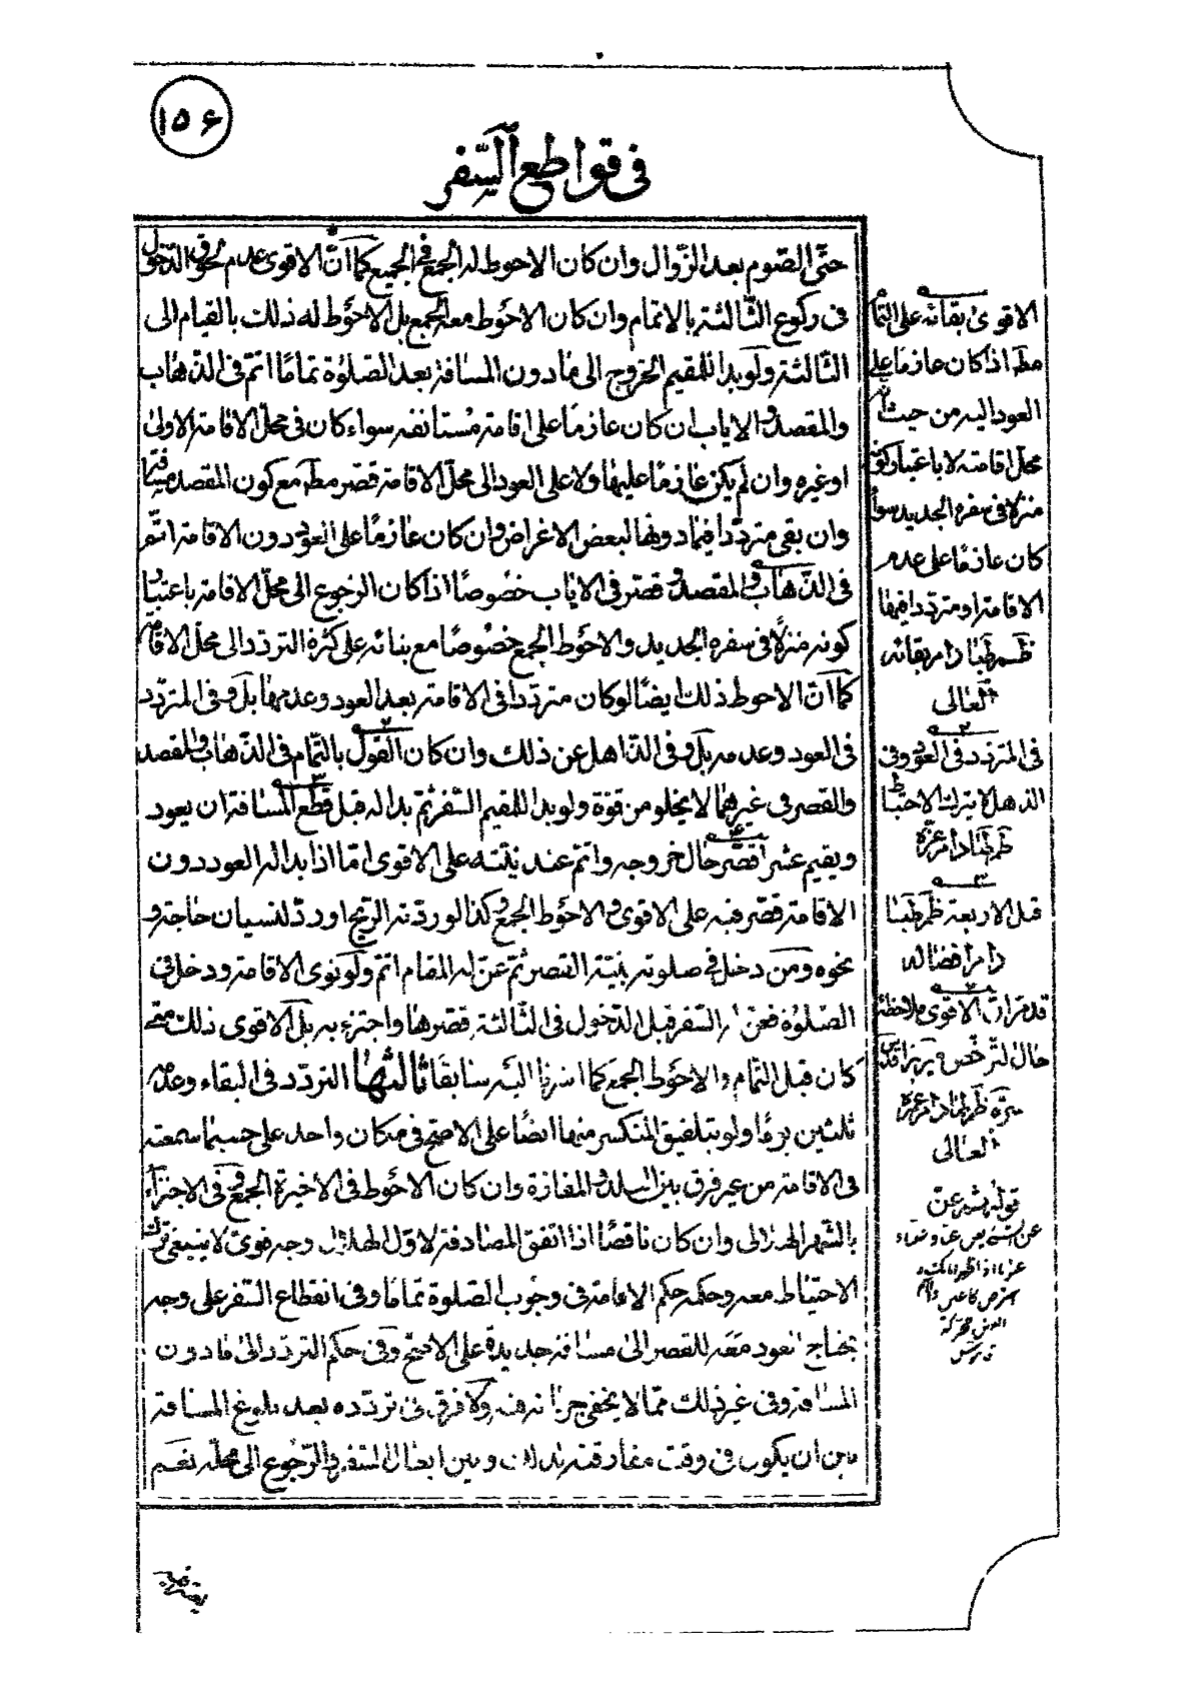 ١٥۶
فی قواطع السّفر
حتّى الصّوم بعد الزّوال وان كان الاحوط له الجمع فی الجمیع كما انّ الاقوى عدم لحوق الدّخول
فی ركوع الثّالثة بالاتمام وان كان الاحوط معه الجمع بل الاحوط له ذلك بالقیام الى
الثّالثة ولو بدا للمقیم الخروج الى مادون المسافة بعد الصّلوة تمامًا اتم فی الذّهاب
والمقصد والایاب ان كان عازمًا على اقامة مستانفه سواء كان فی محلّ الاقامة الاولى
او غیره وان لم یكن عازمًا علیها ولا على العود الى محلّ الاقامة قصّر مطه مع كون المقصد مسافة
وان بقی متردّدا فیما دونها لبعض الاغراض وان كان عازمًا على العود دون الاقامة اتمّ
فی الذّهاب والمقصد وقصّر فی الایاب خصوصًا اذا كان الرجوع الى محلّ الاقامة باعتبار
كونه منزلًا فی سفره الجدید والاحوط الجمع خصوصًا مع بنائه على كثرة التردّد الى محلّ الاقامة
كما انّ الاحوط ذلك ایضًا لو كان متردّدا فی الاقامة بعد العود وعدمها بل وفی المتردّد
فی العود وعدمه بل وفی الذّاهل عن ذلك وان كان القول بالتّمام فی الذّهاب والمقصد
والقصر فی غیرهما لا یخلو من قوّة ولو بدا للمقیم السّفر ثم بدا له قبل قطع المسافة ان یعود
ویقیم عشرا قصّر حال خروجه واتم عند نیّته على الاقوى امّا اذا بدا له العود دون
الاقامة قصّر فیه على الاقوى والاحوط الجمع وكذا لو ردّته الریح او ردّ لنسیان حاجة و
نحوه ومن دخل فی صلوته بنیّة القصر ثمّ عنّ له المقام اتم ولو نوى الاقامة ودخل فی
الصّلوة فعنّ له السّفر قبل الدّخول فی الثّالثة قصرها واجتزء به بل الاقوى ذلك متى
كان قبل التمام والاحوط الجمع كما اشرنا الیه سابقًا ثالثها التردّد فی البقاء وعدمه
ثلثین یومًا ولو بتلفیق المنكسر منها ایضًا على الاصح فی مكان واحد على حسبما سمعته
فی الاقامة من غیر فرق بین البلد والمفازة وان كان الاحوط فی الاخیرة الجمع وفی الاجتزاء
بالشّهر الهلالی وان كان ناقصًا اذا اتفق المصادفة لاوّل الهلال وجه قوی لا ینبغی ترك
الاحتیاط معه وحكمه حكم الاقامة فی وجوب الصّلوة تمامًا وفی انقطاع السّفر على وجه
یحتاج العود معه للقصر الى مسافة جدیدة على الاصح وفی حكم التردّد الى مادون
المسافة وفی غیر ذلك ممّا لا یخفى جریانه فیه ولا فرق فی تردّده بعد بلوغ المسافة
بین ان یكون فی وقت مفارقته وبین ابطال السّفر والرّجوع الى محلّه نعم
الاقوى بقائه على التمام
مطه اذا كان عازمًا على
العود الیه من حیث انّه
محلّ اقامته لا باعتبار كونه
منزلا فی سفره الجدید سواء
كان عازمًا على عدم
الاقامة او متردّدا فیها
دام بقائه
العالی
فی المتردّد فی العود وفی
الذهل لا یترك الاحتیاط
دام عزّه
قبل الاربعة
دام افضاله
قد مرّ ان الاقوى ملاحظة
حال الترخّص
العالی